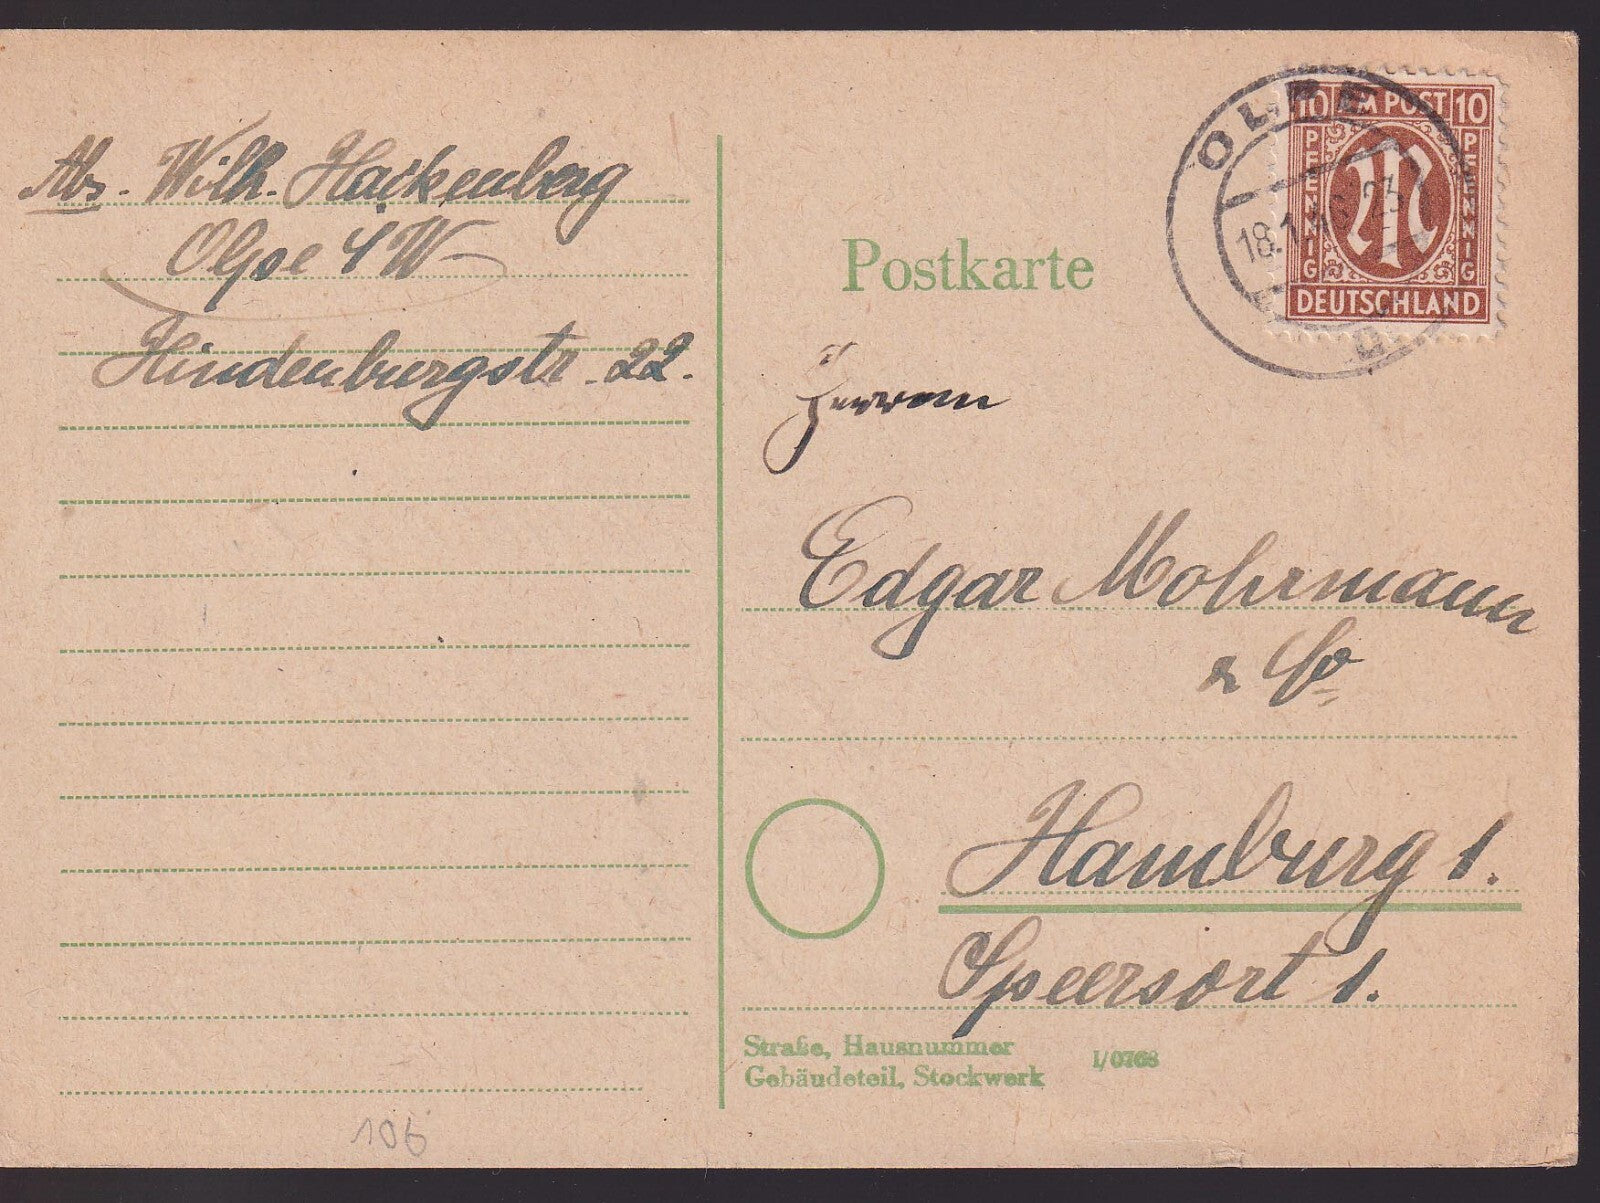 Abs. Wilh. Hackenberg
Olpe i/W
Hindenburgstr. 22.
Postkarte
OLPE
18.1.46 23
10 AM POST 10
PFENNIG
PFENNIG
DEUTSCHLAND
Herren
Edgar Mohrmann
& Co
Hamburg 1.
Speersort 1.
Straße, Hausnummer
Gebäudeteil, Stockwerk
I/0768
106